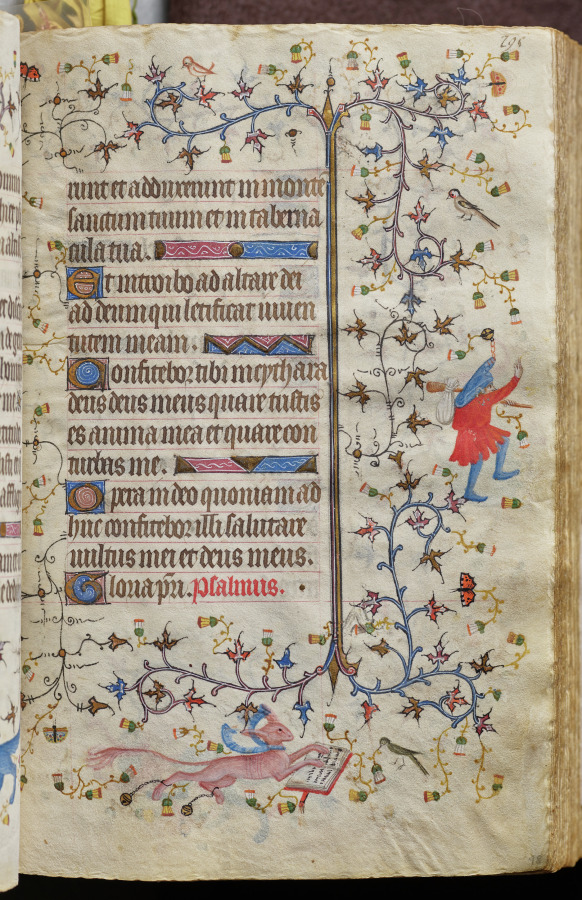 296
runt et adduxerunt in monte
sanctum tuum et in taberna
cula tua.
Et introibo ad altare dei
ad deum qui letificat iuuen
tutem meam.
Confitebor tibi in cythara
deus deus meus quare tristis
es anima mea et quare con
turbas me.
Spera in deo quoniam ad
huc confitebor illi salutare
uultus mei et deus meus.
Gloria pri. psalmus.